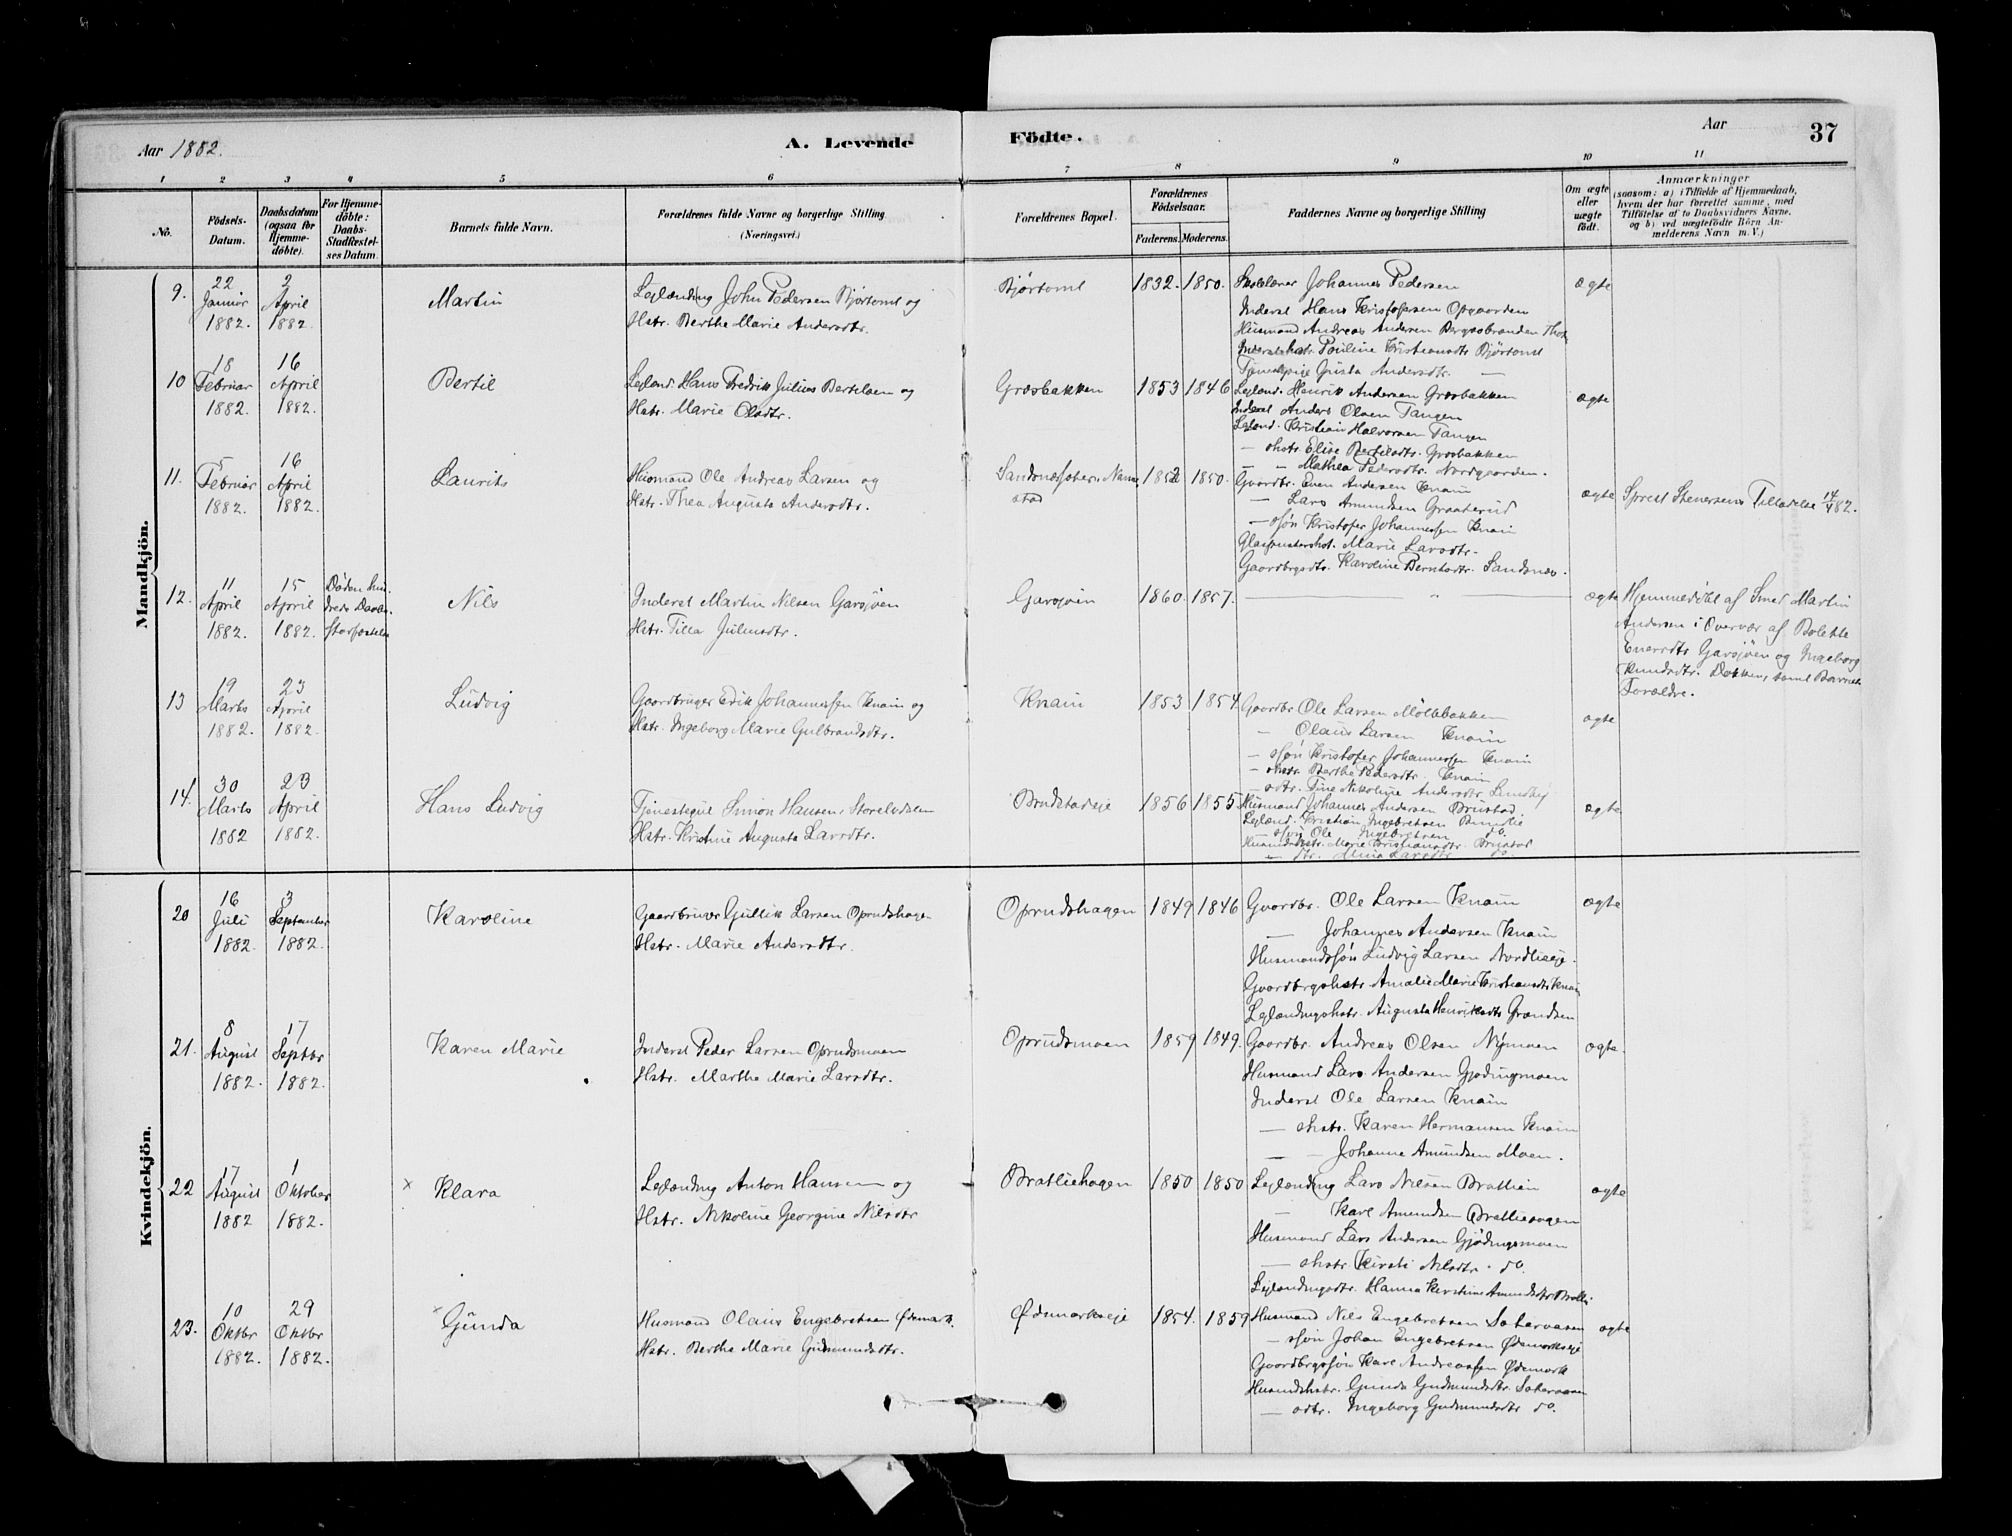 Aar 1882.
A. Levende
Födte.
Aar
37
1 2 3 4 5 6 7 8 9 10 11
No.
Födsels-Datum.
Daabsdatum (ogsaa for Hjemme-döbte).
For Hjemme-döbte: Daabs-Stadfæstel-ses Datum.
Barnets fulde Navn.
Forældrenes fulde Navne og borgerlige Stilling (Næringsvei.)
Forældrenes Bopæl.
Forældrenes Födselsaar.
Faderens. Moderens.
Faddernes Navne og borgerlige Stilling
Om ægte eller uægte födt.
Anmærkninger
(saasom: a) i Tilfælde af Hjemmedaab,
hvem der har forrettet samme, med
Tilföielse af to Daabsvidners Navne,
og b) ved uægtefödte Börn An-
melderens Navn m. V.)
Mandkjön.
9. 22 Januar 1882. 2 April 1882. Martin
Leilænding John Pedersen Bjørtomt og
Hstr. Berthe Marie Andersdtr.
Bjørtomt 1832. 1850.
Skolelærer Johannes Pedersen
Inderst Hans Kristofersen Opgaarden
Husmand Andreas Andersen Bergsbraaden
Inderstehstr. Pauline Kristiansdtr Bjørtomt
Andersdtr. —
ægte
10 18 Februar 1882. 16 April 1882. Bertil
Leilænd. Hans Fredrik Julius Bertelsen og
Hstr. Marie Olsdtr.
Græsbakken 1853 1846
Leilænd. Henrik Andersen Græsbakken
Inderst Anders Olsen Tangen
Leilænd. Kristian Halvorsen Tangen
— shstr. Elise Bertilsdtr. Græsbakken
— — Mathea Pedersdtr. Nordgaarden.
ægte
11. 5 Februar 1882. 16 April 1882. Laurits
Husmand Ole Andreas Larsen og
Hstr. Thea Augusta Andersdtr.
1852 1850.
Gaardbr. Even Andersen Knain
— Lars Amundsen Graaterud
— søn Kristofer Johannessen Knain
Marie Larsdtr.
Gaardbrgsdtr. Karoline Berntsdtr. Sandsnæs.
ægte
Sprest Stenersens Tilladelse 14/4 82.
12. 11 April 1882. 15 April 1882.
Nils
Inderst Martin Nilsen Garsjøen
Hstr. Tilla Julinsdtr.
Garsjøen 1860. 1857.
— " —
ægte
Hjemmedøbt af Smed Martin
Andersen i Overvær af Bolette
Enersdtr Garsjøen og Ingeborg
Knudsdtr. Dokken, samt Barnets
Forældre.
13 19 Marts 1882. 23 April 1882. Ludvig
Gaardbruger Erik Johannessen Knain og
Hstr. Ingeborg Marie Gulbrandsdtr.
Knain 1853 1854.
Gaardbr. Ole Larsen Møllebakken
— Olaus Larsen Knain
— søn Kristofer Johannessen Knain
— shstr. Berthe Pedersdtr. Knain
— sdtr. Tine Nikoline Andersdtr. Lundby
ægte
14. 30 Marts 1882 23 April 1882. Hans Ludvig
Tjenestegut Simon Hansen,
Hstr. Kristine Augusta Larsdtr.
Brudstadeje 1856 1855.
Husmand Johannes Andersen Brustad
Leilænd. Kristian Ingebretsen
— søn Ole Ingebretsen do.
Husmandshstr. Marie Kristiansdtr. Brustad
— dtr. Larsdtr. do.
ægte
Kvindekjön.
20 16 Juli 1882. 3 September 1882. Karoline
Gaardbruger Gullik Larsen Oprudshagen
Hstr. Marie Andersdtr.
Oprudshagen 1849 1846
Gaardbr. Ole Larsen Knain
— Johannes Andersen Knain
Husmandssøn Ludvig Larsen Nordlieeje.
Gaardbrgshstr. Amalie Marie Kristiansdtr Knain
Leilændingshstr. Augusta Henriksdtr Grændsen
ægte
21. 8 August 1882. 17 Septbr 1882. Karen Marie
Inderst Peder Larsen Oprudsmoen
Hstr. Marthe Marie Larsdtr.
Oprudsmoen 1859 1849.
Gaardbr. Andreas Olsen Nymoen
Husmand Lars Andersen Gjødingsmoen
Inderst Ole Larsen Knain
— shstr. Karen Hermansen Knain
— — Johanne Amundsen Moen.
ægte.
22 17 August 1882 1 Oktober 1882. × Klara
Leilænding Anton Hansen og
Hstr. Nikoline Georgine Nilsdtr
Bratliehagen 1850 1850
Leilænding Lars Nilsen Bratlien
— Karl Amundsen Bratliehagen
Husmand Lars Andersen Gjødingsmoen
— shstr Kirsti Nilsdtr. do.
Leilændingsdtr. Hanna Kirstine Amundsdtr Bratli
ægte
23. 10 Oktbr 1882. 29 Oktbr 1882. × Gunda
Husmand Olaus Engebretsen Ødemark.
Hstr. Berthe Marie Gudmundsdtr.
Ødemarkseje 1854. 1859
Husmand Nils Engebretsen
— ssøn Johan Engebretsen Ødemarkseje
Gaardbrgssøn Karl Andreassen Ødemark
Husmdshstr. Gunda Gudmundsdtr.
— sdtr. Ingeborg Gudmundsdtr do.
ægte